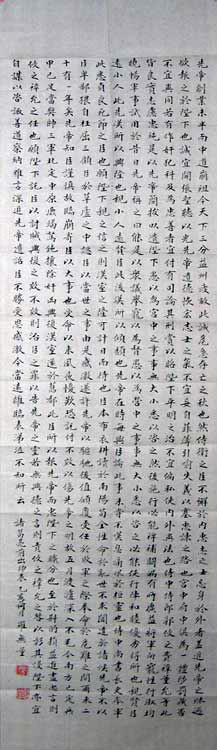 先帝創業未半而中道崩殂今天下三分益州疲敝此誠危急存亡之秋也然侍衛之臣不懈於內忠志之士忘身於外者蓋追先帝之殊遇
欲報之於陛下也誠宜開張聖聽以光先帝遺德恢宏志士之氣不宜妄自菲薄引喻失義以塞忠諫之路也宮中府中俱為一體陟罰臧否
不宜異同若有作奸犯科及為忠善者宜付有司論其刑賞以昭陛下平明之治不宜偏私使內外異法也侍中侍郎郭攸之費禕董允等此
皆良實志慮忠純是以先帝簡拔以遺陛下愚以為宮中之事事無大小悉以咨之然後施行必能裨補闕漏有所廣益將軍向寵性行淑均
曉暢軍事試用於昔日先帝稱之曰能是以眾議舉寵以為督愚以為營中之事事無大小悉以咨之必能使行陣和睦優劣得所也親賢臣
遠小人此先漢所以興隆也親小人遠賢臣此後漢所以傾頹也先帝在時每與臣論此事未嘗不歎息痛恨於桓靈也侍中尚書長史參軍
此悉貞良死節之臣也願陛下親之信之則漢室之隆可計日而待也臣本布衣躬耕南陽苟全性命於亂世不求聞達於諸侯先帝不以
臣卑鄙猥自枉屈三顧臣於草廬之中諮臣以當世之事由是感激遂許先帝以驅馳後值傾覆受任於敗軍之際奉命於危難之間爾來二
十有一年矣先帝知臣謹慎故臨崩寄臣以大事也受命以來夙夜憂歎恐託付不效以傷先帝之明故五月渡瀘深入不毛今南方已定兵
甲已足當獎帥三軍北定中原庶竭駑鈍攘除奸凶興復漢室還於舊都此臣所以報先帝而忠陛下之職分也至於斟酌損益進盡忠言則
攸之禕允之任也願陛下託臣以討賊興復之效不效則治臣之罪以告先帝之靈若無興德之言則責攸之禕允之咎以彰其慢陛下亦宜
自謀以咨諏善道察納雅言深追先帝遺詔臣不勝受恩感激今當遠離臨表涕泣不知所云 諸葛亮前出師表